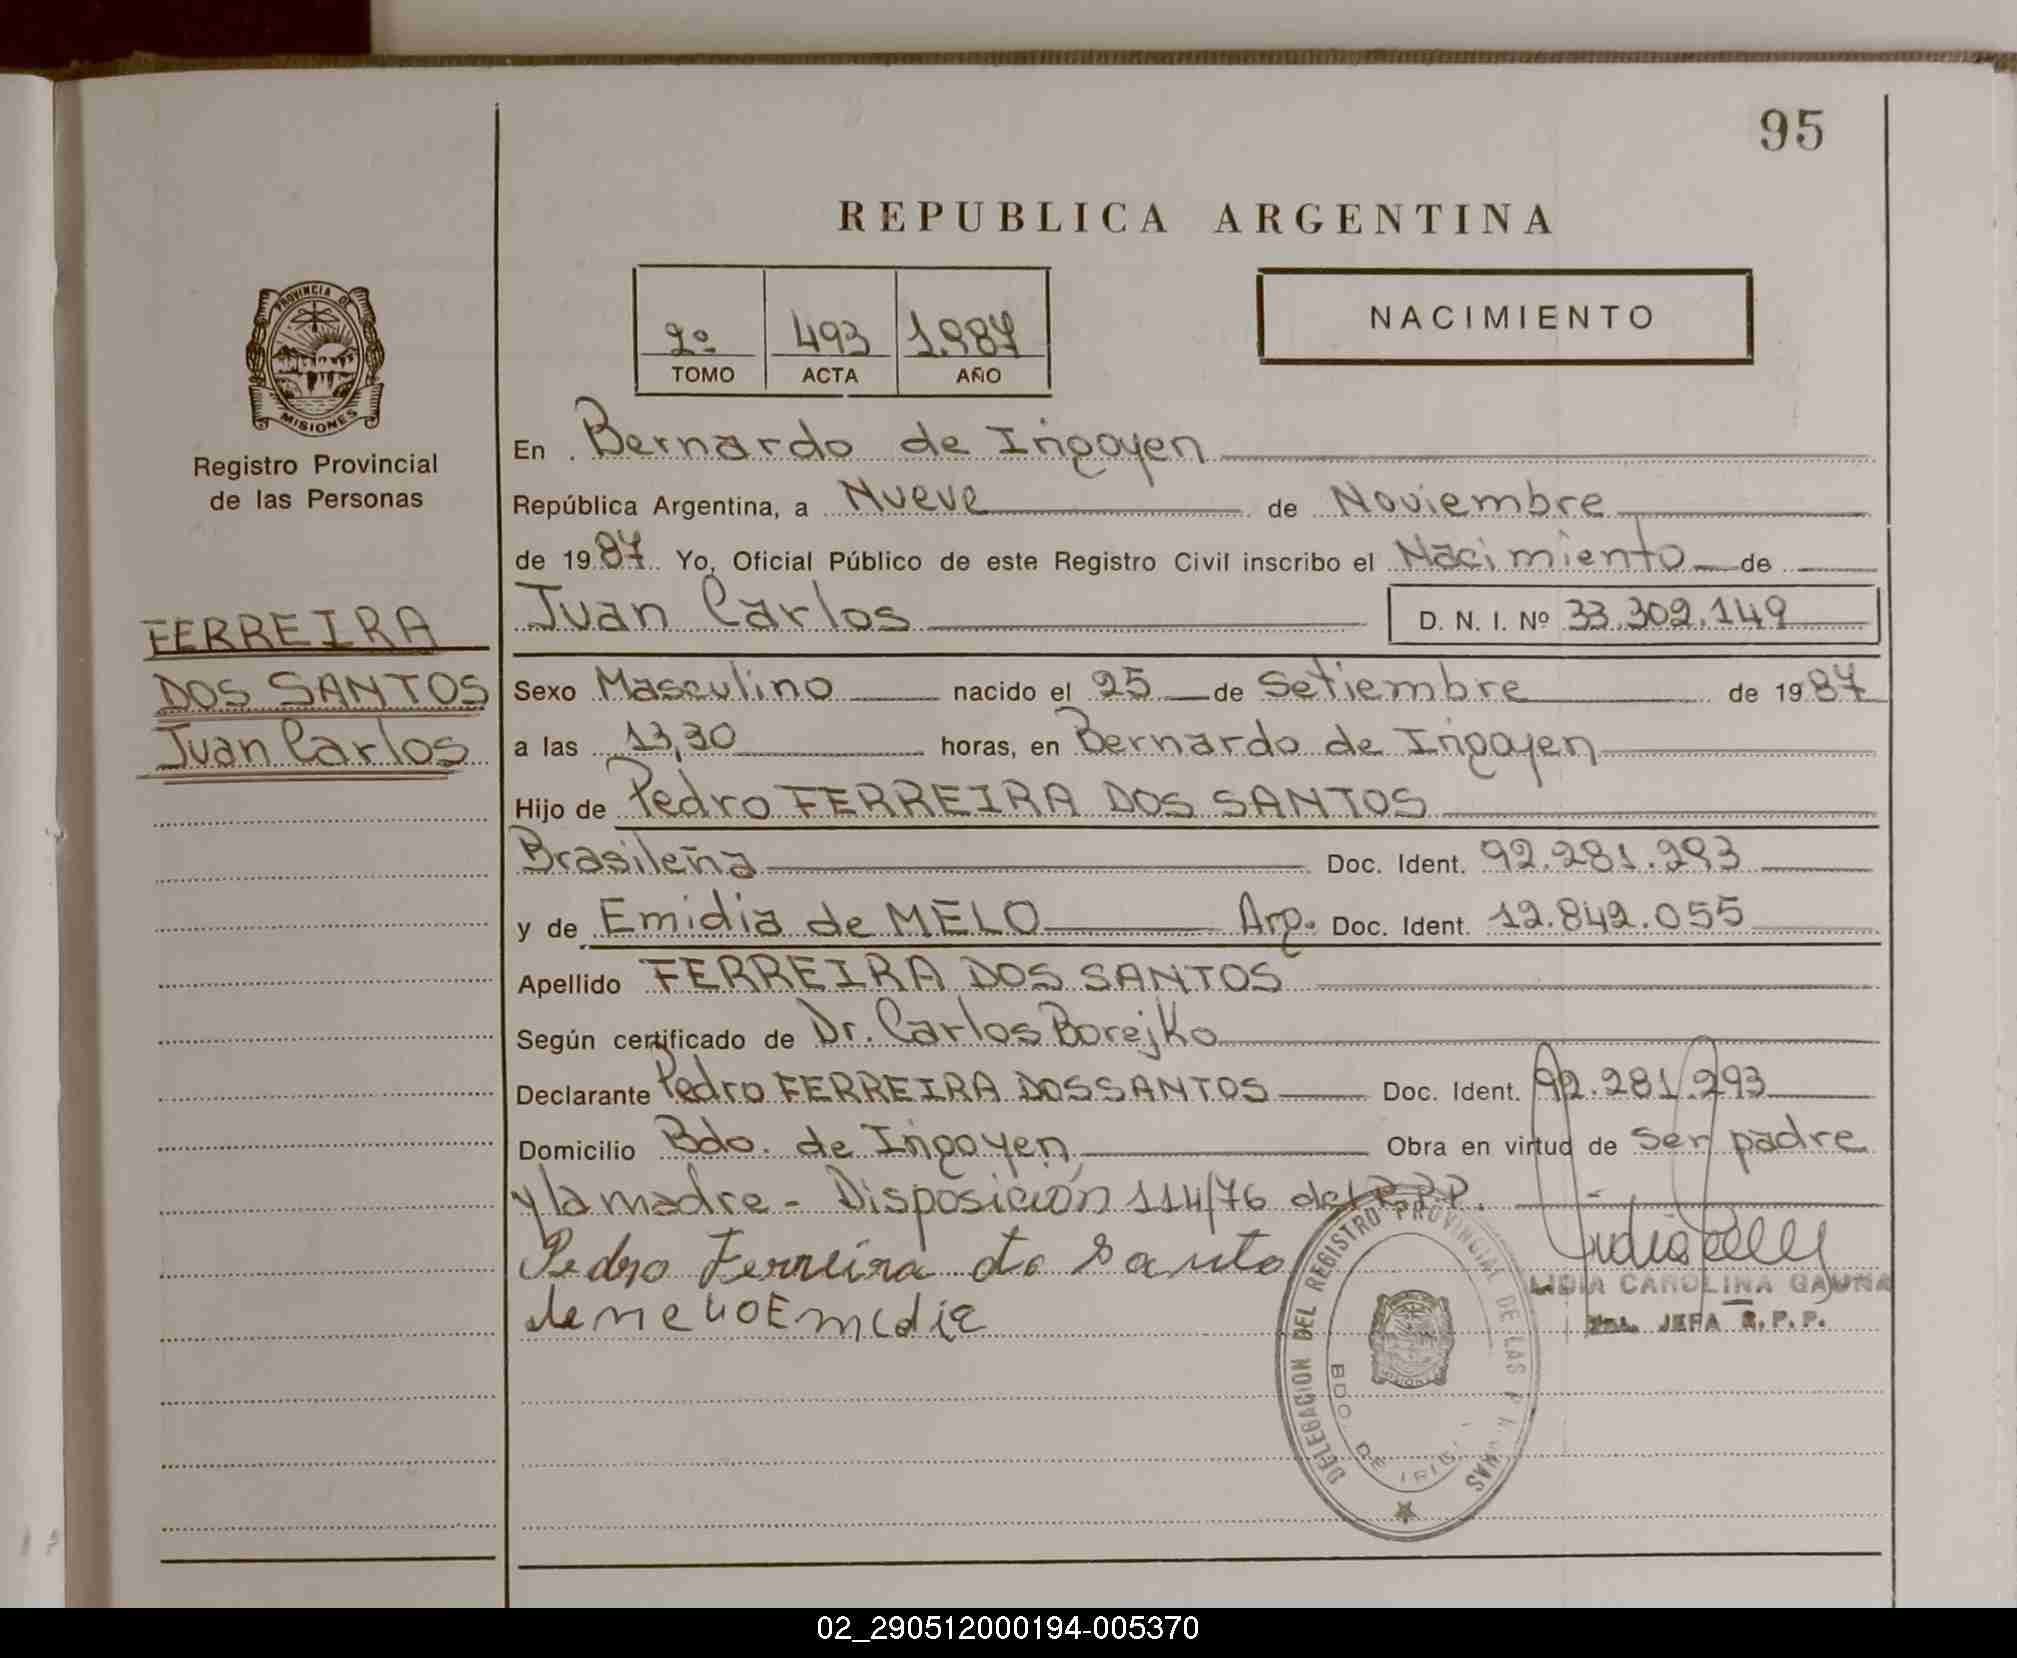 95
REPUBLICA ARGENTINA
PROVINCIA DE
MISIONES
Registro Provincial
de las Personas
2º 493 1.987
TOMO ACTA AÑO
NACIMIENTO
En Bernardo de Irigoyen
República Argentina, a Nueve de Noviembre
de 1987 Yo, Oficial Público de este Registro Civil inscribo el Nacimiento de
Juan Carlos D. N. I. Nº 33.302.149
FERREIRA
DOS SANTOS
Juan Carlos
Sexo Masculino nacido el 25 de Setiembre de 1987
a las 13,30 horas, en Bernardo de Irigoyen
Hijo de Pedro FERREIRA DOS SANTOS
Brasileña Doc. Ident. 92.281.293
y de Emidia de MELO Arg. Doc. Ident. 12.842.055
Apellido FERREIRA DOS SANTOS
Según certificado de Dr. Carlos Borejko
Declarante Pedro FERREIRA DOS SANTOS Doc. Ident. 92.281.293
Domicilio Bdo. de Irigoyen Obra en virtud de ser padre
y la madre - Disposición 114/76 del R.P.P.
Pedro Ferreira do Santo
de melio Emidia
LIDIA CAROLINA GAUNA
JEFA R.P.P.
DELEGACION DEL REGISTRO PROVINCIAL DE LAS
BDO. DE
02_290512000194-005370